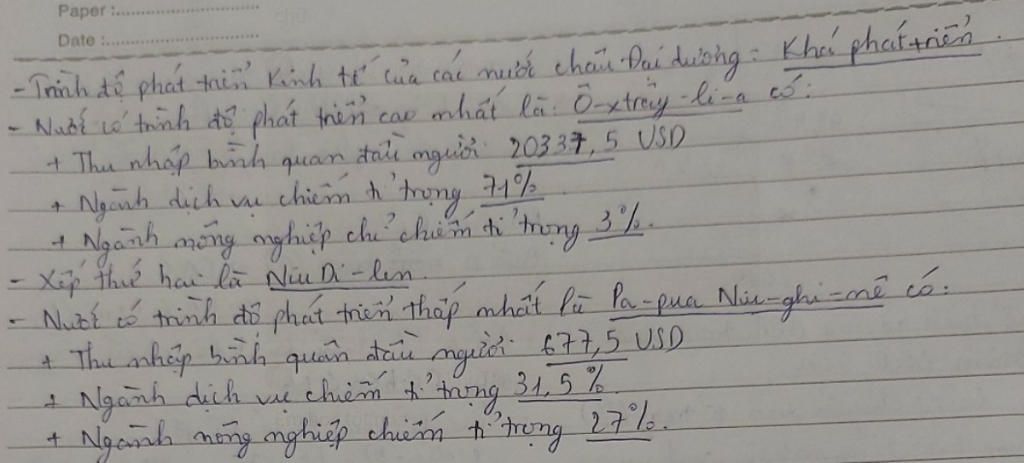 Paper :
Date :
- Trình độ phát triển kinh tế của các nước châu Đại dương: Khá phát triển.
- Nước có trình độ phát triển cao nhất là: Ô-xtrây-li-a có:
+ Thu nhập bình quân đầu người 20337,5 USD
+ Ngành dịch vụ chiếm tỉ trọng 71%
+ Ngành nông nghiệp chỉ chiếm tỉ trọng 3%.
- Xếp thứ hai là Niu Di-len.
- Nước có trình độ phát triển thấp nhất là Pa-pua Niu-ghi-nê có:
+ Thu nhập bình quân đầu người 677,5 USD
+ Ngành dịch vụ chiếm tỉ trọng 31,5%
+ Ngành nông nghiệp chiếm tỉ trọng 27%.